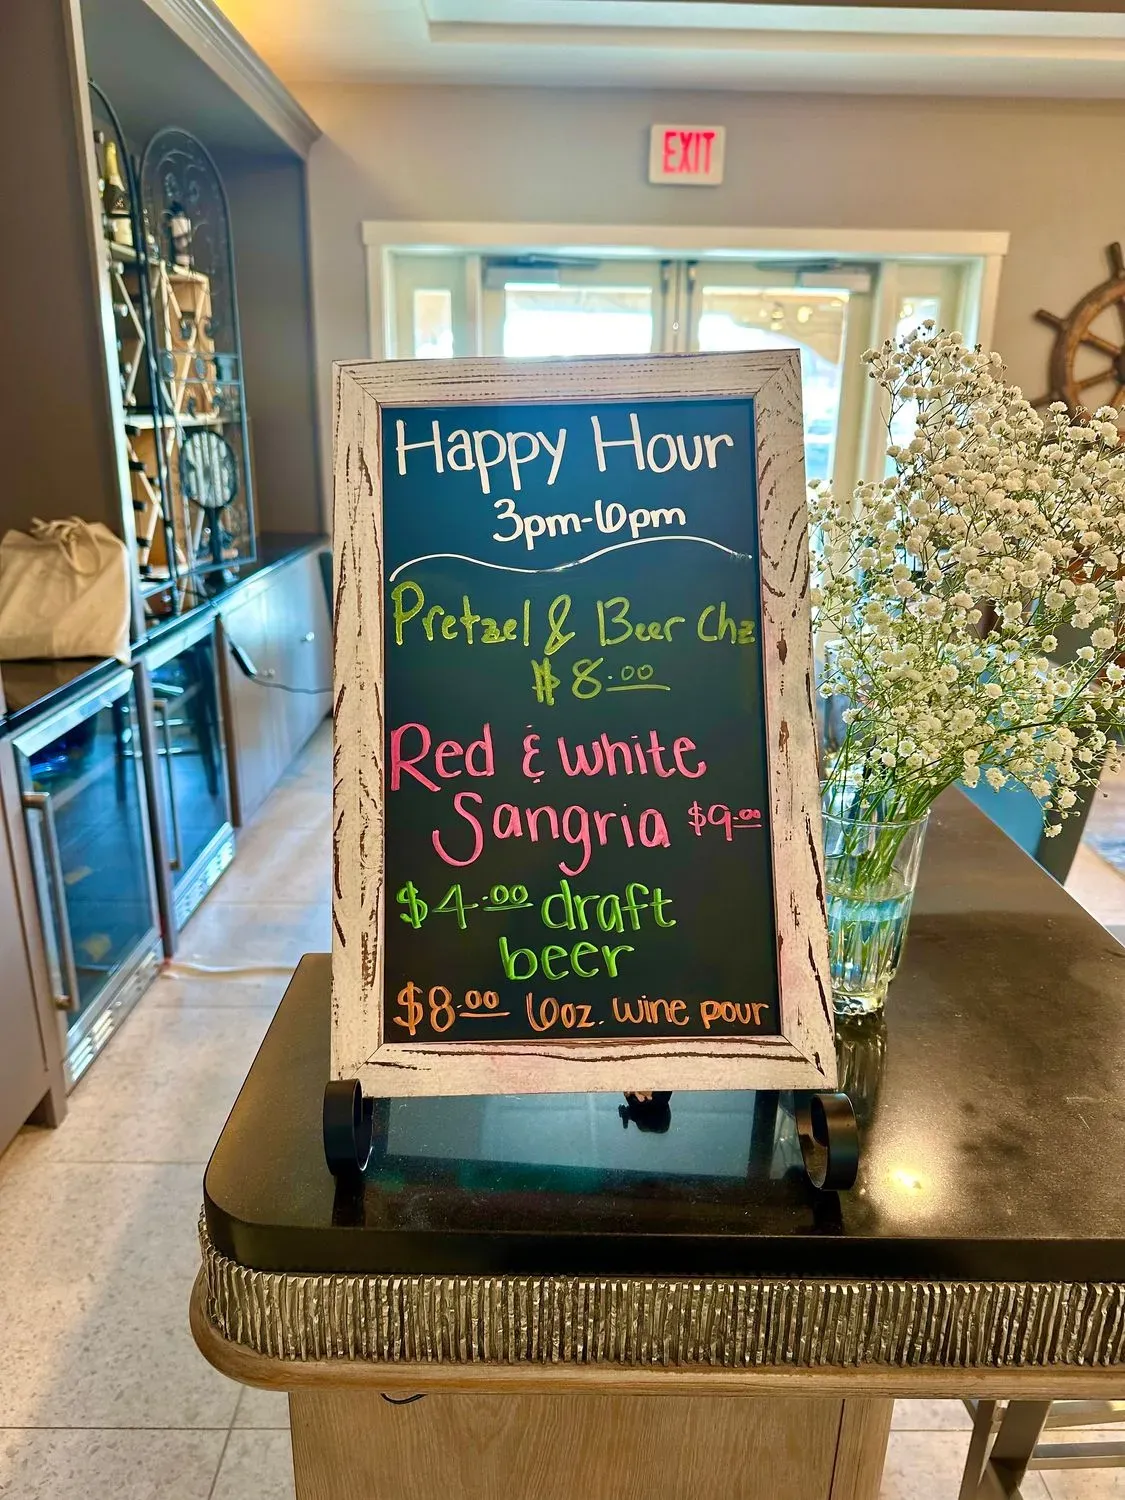 EXIT
Happy Hour
3pm-6pm
Pretzel & Beer Chz
$8.00
Red & white
Sangria $9.00
$4.00 draft
beer
$8.00 6oz. wine pour